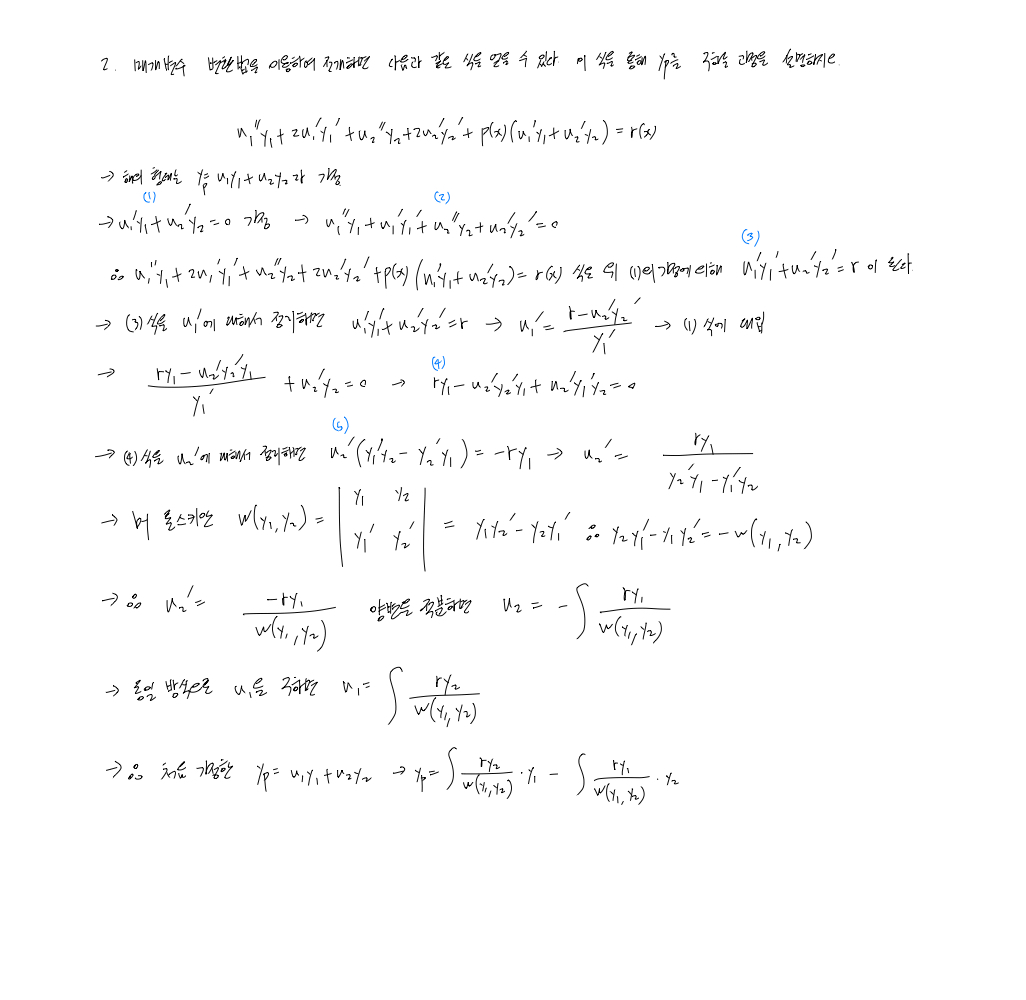 2. 매개변수 변환법을 이용하여 전개하면 다음과 같은 식을 얻을 수 있다 이 식을 통해 yp를 구하는 과정을 설명하시오.
u₁''y₁ + 2u₁'y₁' + u₂''y₂ + 2u₂'y₂' + p(x)(u₁'y₁ + u₂'y₂) = r(x)
→ 해의 형태는 yp = u₁y₁ + u₂y₂라 가정
(1) (2)
→ u₁'y₁ + u₂'y₂ = 0 가정 → u₁''y₁ + u₁'y₁' + u₂''y₂ + u₂'y₂' = 0
(3)
∴ u₁''y₁ + 2u₁'y₁' + u₂''y₂ + 2u₂'y₂' + p(x)(u₁'y₁ + u₂'y₂) = r(x) 식은 위 (1)의 가정에 의해 u₁'y₁' + u₂'y₂' = r 이 된다.
→ (3)식을 u₁'에 대해서 정리하면 u₁'y₁' + u₂'y₂' = r → u₁' = (r - u₂'y₂') / y₁' → (1) 식에 대입
(4)
→ (ry₁ - u₂'y₂'y₁) / y₁' + u₂'y₂ = 0 → ry₁ - u₂'y₂'y₁ + u₂'y₁'y₂ = 0
(5)
→ (4)식을 u₂'에 대해서 정리하면 u₂'(y₁'y₂ - y₂'y₁) = -ry₁ → u₂' = ry₁ / (y₂'y₁ - y₁'y₂)
→ by 론스키안 W(y₁, y₂) = | y₁ y₂ ; y₁' y₂' | = y₁y₂' - y₂y₁' ∴ y₂y₁' - y₁y₂' = -w(y₁, y₂)
→ ∴ u₂' = -ry₁ / W(y₁, y₂) 양변을 적분하면 u₂ = -∫ ry₁ / W(y₁, y₂)
→ 동일 방식으로 u₁을 구하면 u₁ = ∫ ry₂ / W(y₁, y₂)
→ ∴ 처음 가정한 yp = u₁y₁ + u₂y₂ → yp = ∫ ry₂ / W(y₁, y₂) · y₁ - ∫ ry₁ / W(y₁, y₂) · y₂